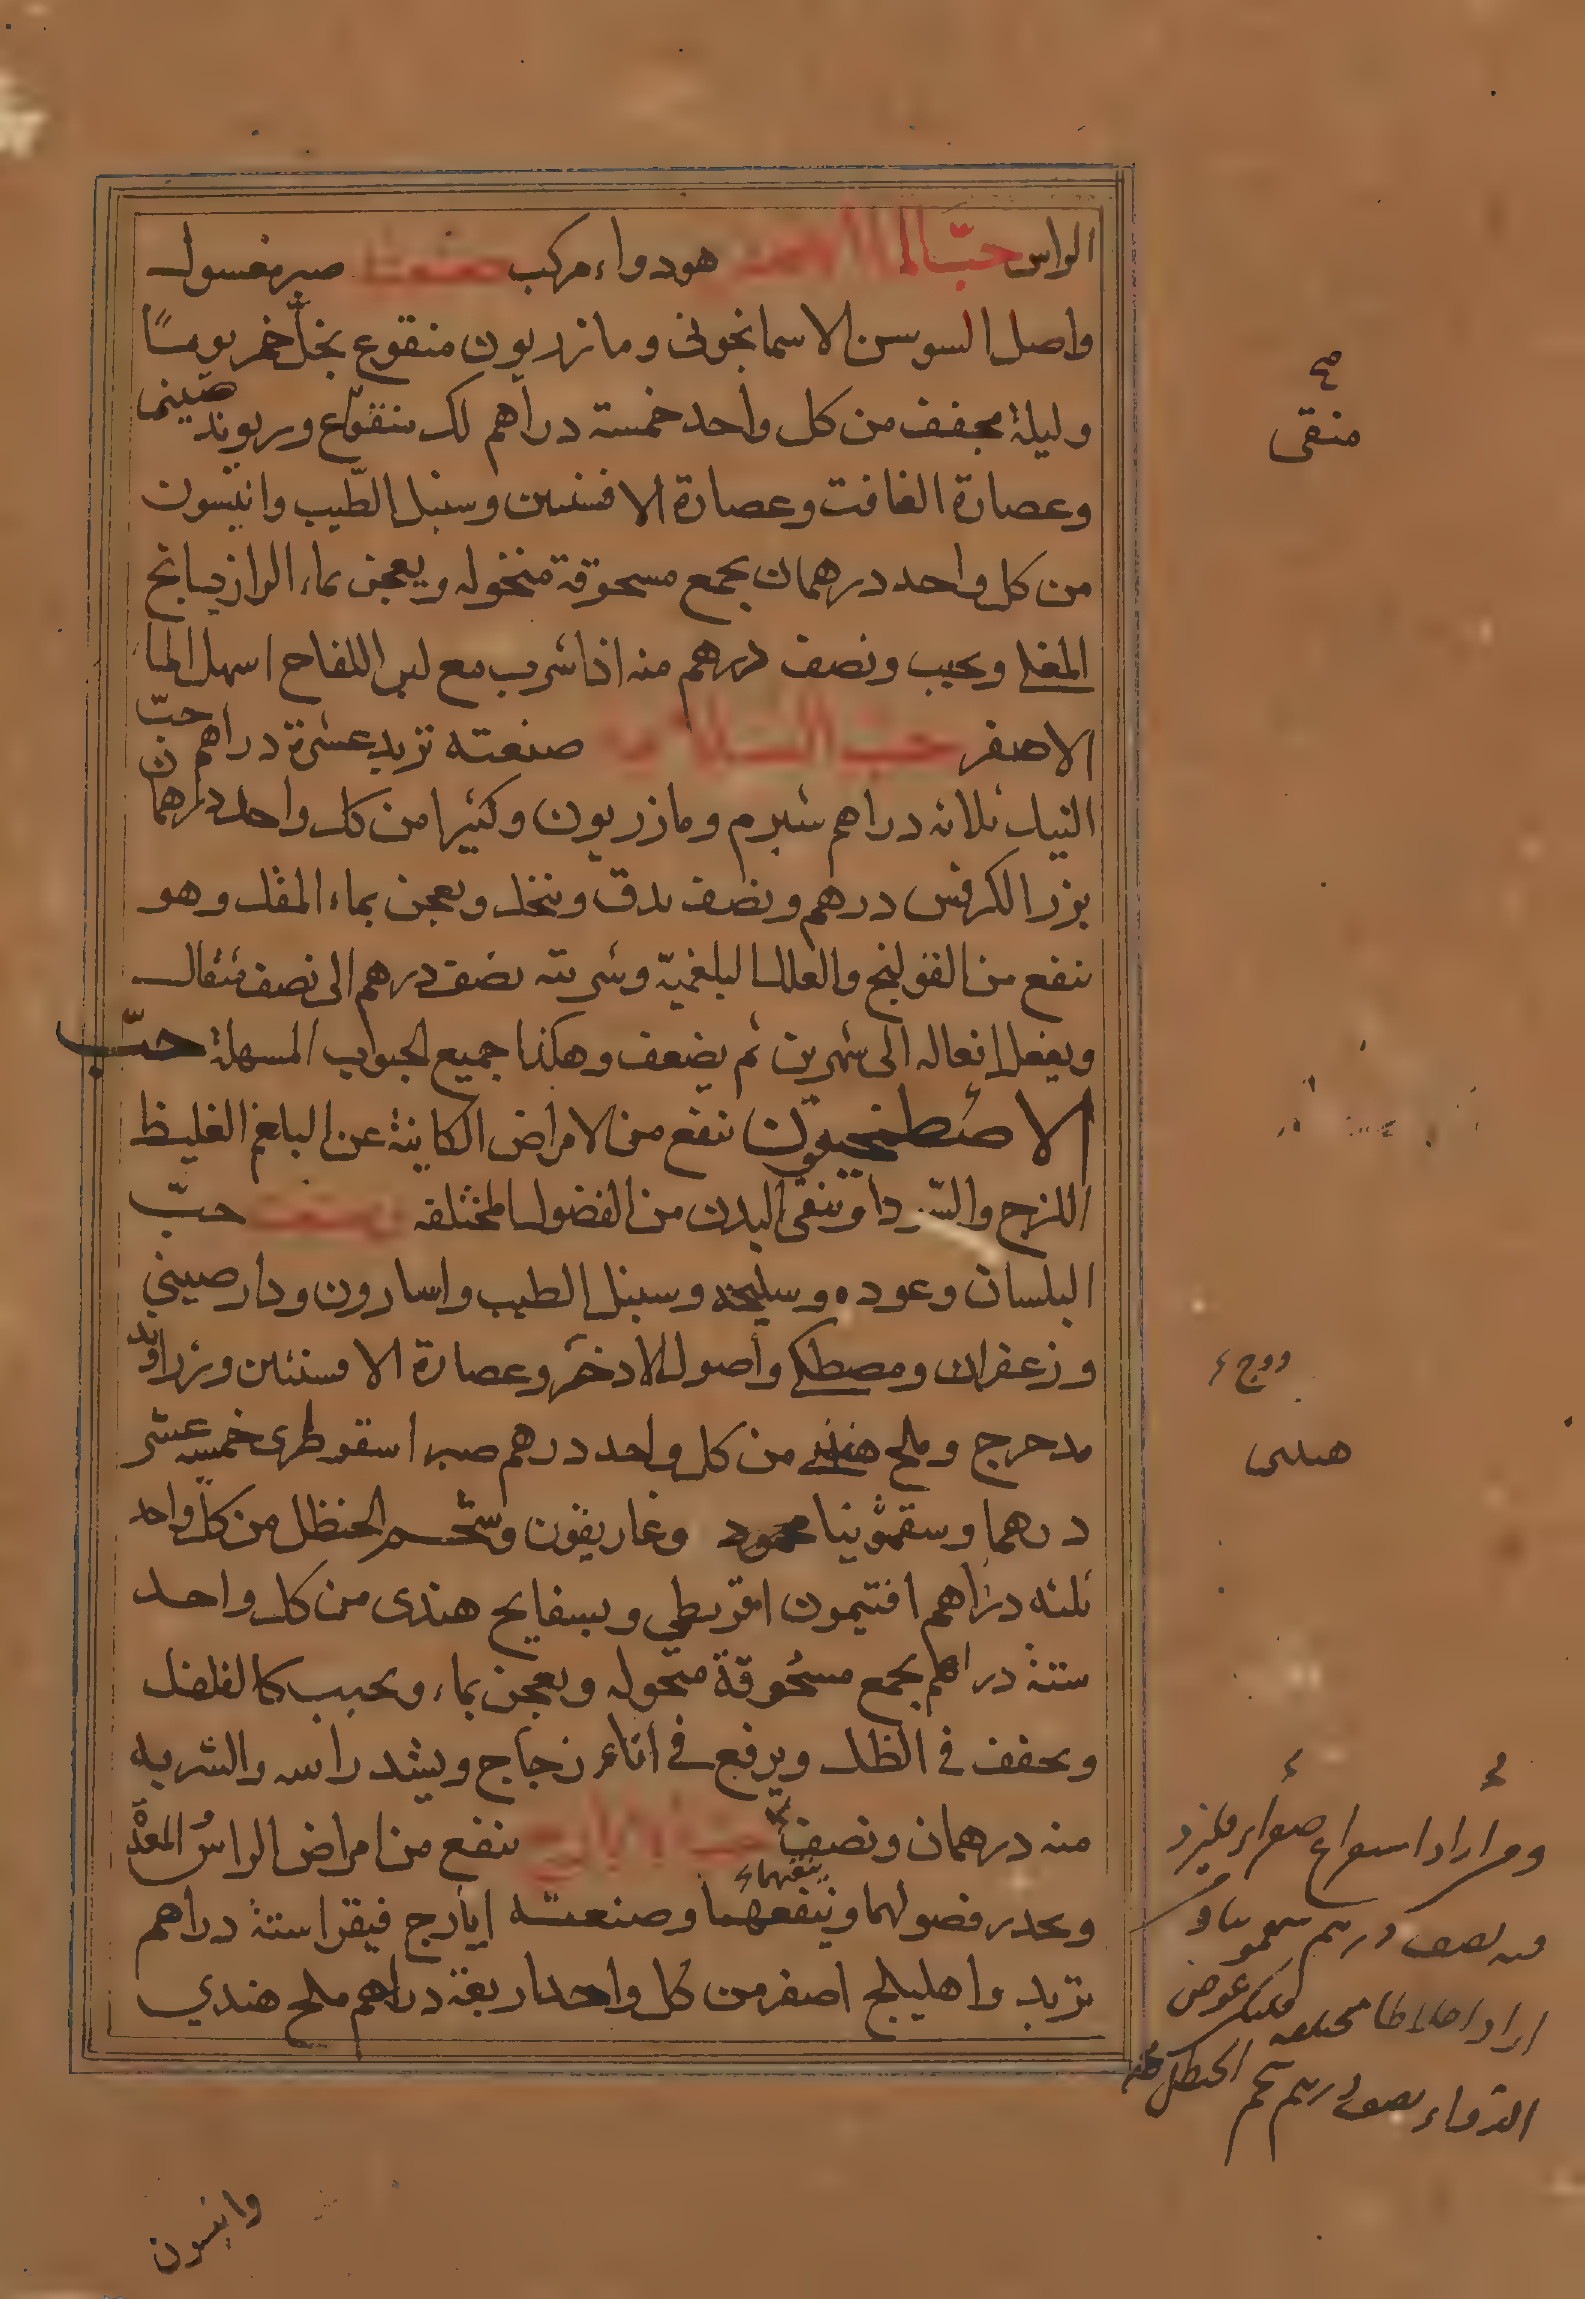 الراس حبّ الماء الاصفر هو دواء مركب صنعته صبر مغسول
واصل السوسن الاسمانجونى ومازريون منقوع بخلّ خمر يومًا
وليلة مجفف من كل واحد خمسة دراهم لك منقّاع وريوند صينى
وعصارة الغافت وعصارة الافسنتين وسنبل الطّيب وانيسون
من كل واحد درهمان يجمع مسحوقة منخوله ويعجن بماء الرازيانج
المغلى ويحبب ونصف درهم منه اذا شرب مع لبن اللقاح اسهل الما
الاصفر حبّ صنعته تربد عشرة دراهم حبّ
النيل ثلاثه دراهم شبرم ومازريون وكثيرا من كل واحد درهمان
بزر الكرفس درهم ونصف يدق وينخل ويعجن بماء المقل وهو
ينفع من القولنج والعلل البلغميّة وشربته نصف درهم الى نصف مثقال
ويفعل افعاله الى شهرين ثم يضعف وهكذا جميع الحبوب المسهلة حبّ
الاصطمخيقون ينفع من الامراض الكاينة عن البلغم الغليظ
اللزج والسّودا وينقى البدن من الفضول المختلفه وصنعته حبّ
البلسان وعوده وسليخه وسنبل الطيب واسارون ودارصيني
وزعفران ومصطكى واصول الاذخر وعصارة الافسنتين وزراوند
مدحرج وملح هندي من كل واحد درهم صبر اسقوطرى خمسه عشر
درهما وسقمونيا محمود وغاريقون وشحم الحنظل من كل واحد
ثلثه دراهم افتيمون اقريطي وبسفايج هندى من كل واحد
ستة دراهم يجمع مسحوقة منخوله ويعجن بماء ويحبب كالفلفل
ويجفف في الظل ويرفع في اناء زجاج ويشد راسه والشربه
منه درهمان ونصف حب الايارج ينفع من امراض الراس المعدة
ويحدر فضولهما وينفعهما ينقيهما وصنعته ايارج فيقرا ستة دراهم
تربد واهليلج اصفر من كل واحد اربعة دراهم ملح هندي
صح
منقى
ووج
هندى
ومن اراد اسراع فليزد
فيه نصف درهم سقمونيا وان
اراد اخلاطا مختلفه فليكن عوض
نصف درهم شحم الحنظل
وانيسون